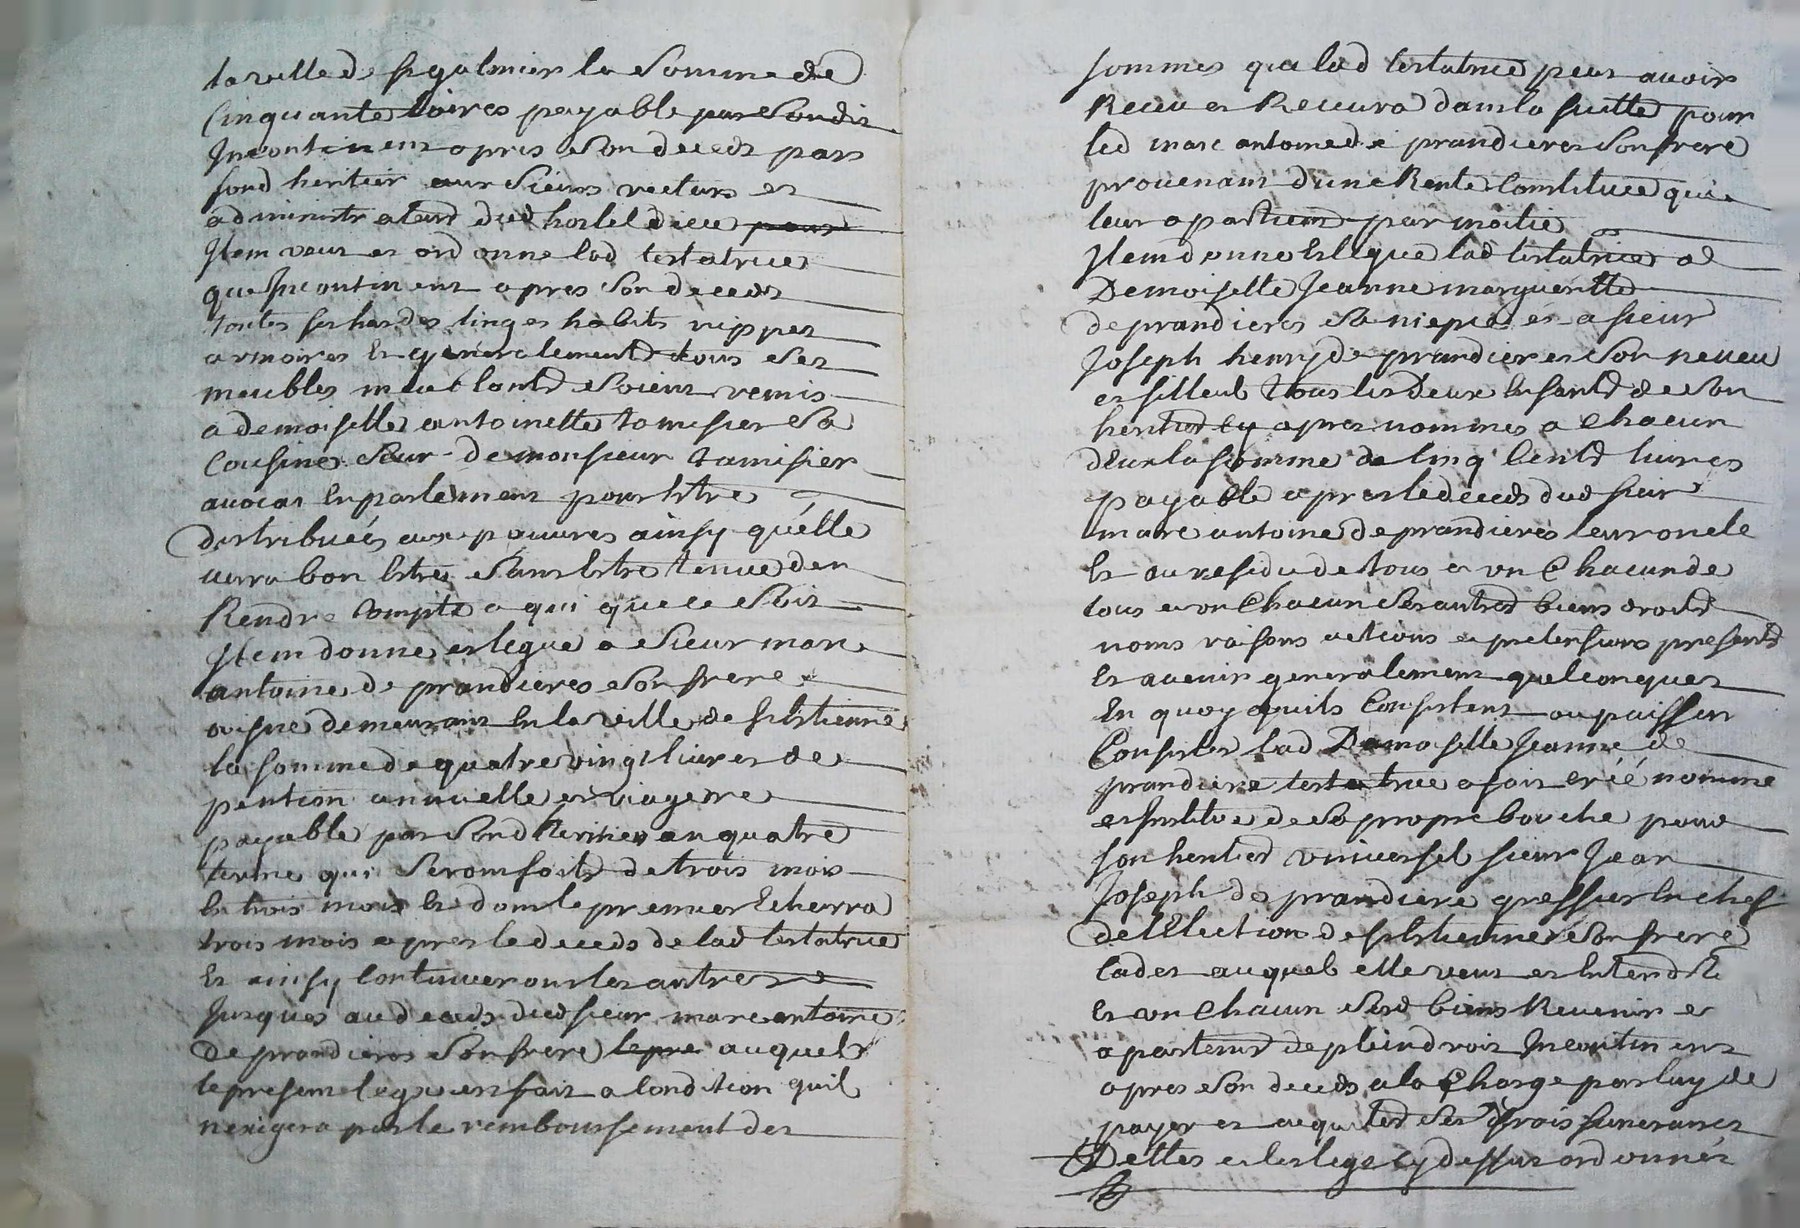 la ville de st galmier la somme de
Cinquante livres payable par sondit
Incontinent apres son deceds par
sond heritier aux sieurs recteurs et
administrateurs dud hostel dieu pour
Item veut et ordonne lad testatrice
que Incontinent apres son deceds
toutes ses hardes linges habits nippes
armoires Et generalement tous ses
meubles meublants soient remis
a demoiselle antoinette tamisier sa
Cousine seur de monsieur tamisier
avocat En parlement pour Estre
distribués aux pauvres ainsy qu'elle
verra bon Estre sans Estre tenue den
Rendre Compte a qui que ce soit
Item donne et legue a sieur marc
antoine de prandieres son frere
demeurant En la ville de st Estienne
la somme de quatre vingt livres de
pention annuelle et viagere
payable par sond heritier an quatre
terme qui seront faits de trois mois
En trois mois Et dont le premier Echerra
trois mois apres le deceds de lad testatrice
Et ainsy Continueront les autres
Jusques au deceds dud sieur marc antoine
de prandieres son frere auquel
le present legs est fait a Condition quil
nexigera pas le remboursement des
sommes que lad testatrice peut avoir
Receu et Recevra dans la suitte pour
led marc antoine de prandieres son frere
provenant d'une Rente Constituee qui
leur apartient par moitie
Item donne Et legue lad testatrice a
Demoiselle Jeanne margueritte
de prandieres sa niepce et a sieur
Joseph henry de prandieres son neveu
et filleul tous les deux Enfants de son
heritier Cy apres nommes a Chacun
d'Eux la somme de Cinq Cents livres
payable apres le deceds dud sieur
marc antoine de prandieres leur oncle
Et au residu de tous et un Chacun de
tous et un Chacun ses autres biens droits
noms raisons actions et pretensions presents
Et avenir generalement quelconques
En quoy quils Consistent ou puissent
Consister lad Demoiselle Jeanne de
prandiere testatrice a fait créé nomme
et Institue de sa propre bouche pour
son heritier universel sieur Jean
Joseph de prandiere greffier En chef
de l'Election de st Estienne son frere
Cadet auquel elle veut et Entend
Et un Chacun sesd biens Revenir et
apartenir de plein droit Incontinent
apres son deceds a la Charge par luy de
payer et acquiter ses frois funeraires
Dettes et les legs Cy dessus ordonnés